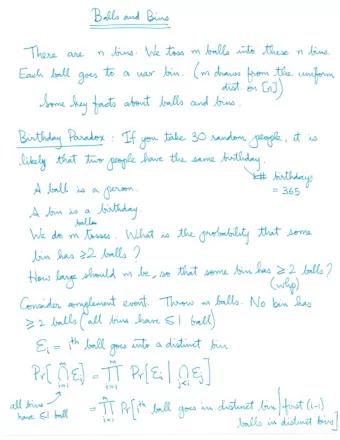 Balls and Bins
There are n bins. We toss m balls into these n bins.
Each ball goes to a uar bin. (m draws from the uniform
dist. on [n])
Some key facts about balls and bins.
Birthday Paradox : If you take 30 random people, it is
likely that two people have the same birthday.
# birthdays
= 365
A ball is a person.
A bin is a birthday.
balls
We do m tosses. What is the probability that some
bin has ≥2 balls?
How large should m be, so that some bin has ≥ 2 balls?
(whp)
Consider complement event. Throw m balls. No bin has
≥ 2 balls (all bins have ≤ 1 ball)
Ɛi = ith ball goes into a distinct bin
Pr[ ⋂_{i=1}^{m} Ɛi ] = ∏_{i=1}^{m} Pr[ Ɛi | ⋂_{j<i} Ɛj ]
all bins
have ≤ 1 ball
= ∏_{i=1}^{m} Pr[ ith ball goes in distinct bin | first (i-1)
balls in distinct bins ]